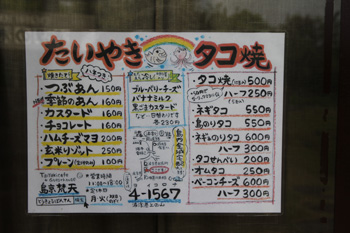 たいやき タコ焼
焼きたて ハネつき
つぶあん 150円
季節のあん 160円
カスタード 160円
チョコレート 160円
ハムチーズマヨ 200円
玄米リゾット 250円
プレーン 100円
冷し
ブルーベリーチーズ
バナナミルク
きなこカスタード
など…日替わりです
各230円
タコ焼 500円
ハーフ 250円
ネギタコ 550円
島のりタコ 550円
ネギのりタコ 600円
ハーフ 300円
タコせんべい 200円
オムタコ 250円
ベーコンチーズ 600円
ハーフ 300円
島京梵天
営業時間
11:00~18:00
月火
4-1567